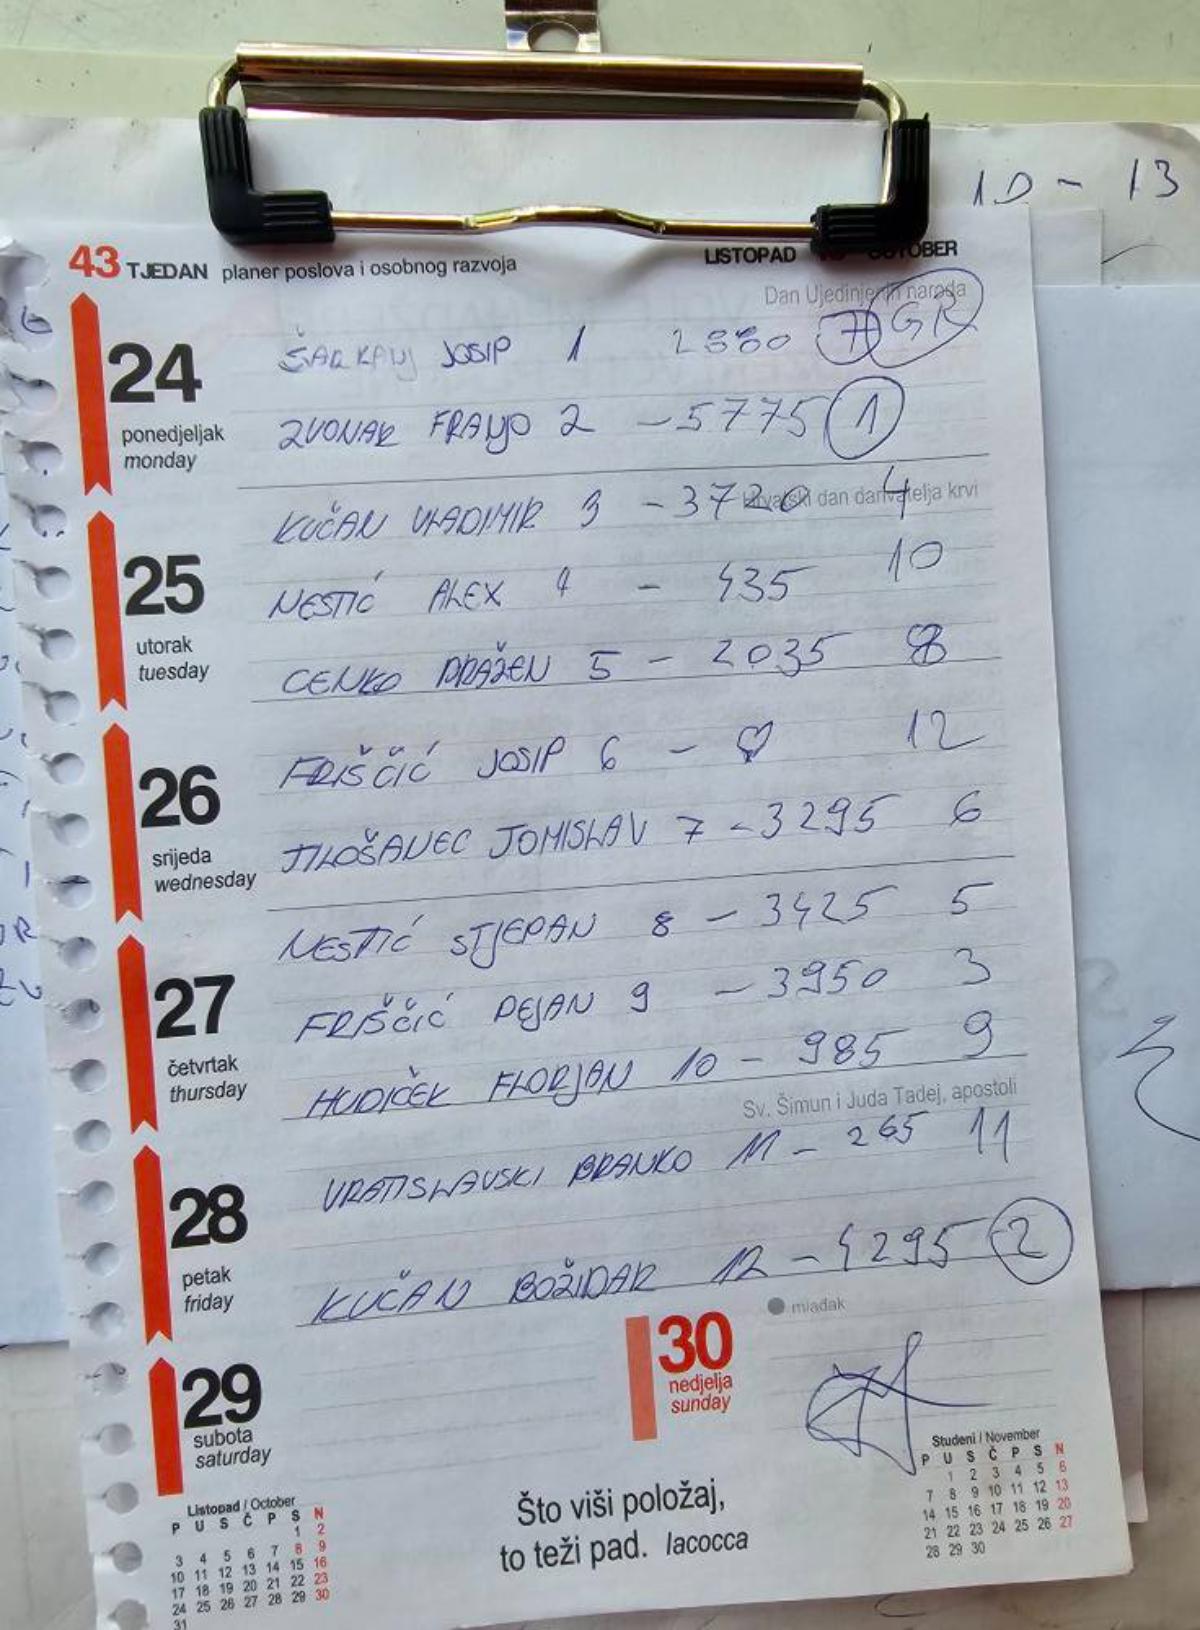 10 - 13
43 TJEDAN planer poslova i osobnog razvoja LISTOPAD OCTOBER
Dan Ujedinjenih naroda
24 ŠARKANJ JOSIP 1 2880 7 GR
ponedjeljak
monday
ZVONAR FRANJO 2 - 5775 1
Hrvatski dan darivatelja krvi
KUČAN VLADIMIR 3 - 3720 4
25 NESTIĆ ALEX 4 - 435 10
utorak
tuesday
CENKO DRAŽEN 5 - 2035 8
26 FRIŠČIĆ JOSIP 6 - 0 12
srijeda
wednesday
TILOŠANEC TOMISLAV 7 - 3295 6
NESTIĆ STJEPAN 8 - 3425 5
27 FRIŠČIĆ DEJAN 9 - 3950 3
četvrtak
thursday
HUDIČEK FLORJAN 10 - 985 9
Sv. Šimun i Juda Tadej, apostoli
28 VRATISLAVSKI BRANKO 11 - 265 11
petak
friday
KUČAN BOŽIDAR 12 - 4295 2
mlađak
29
subota
saturday
30
nedjelja
sunday
Što viši položaj,
to teži pad. Iacocca
Listopad / October
P U S Č P S N
1 2
3 4 5 6 7 8 9
10 11 12 13 14 15 16
17 18 19 20 21 22 23
24 25 26 27 28 29 30
31
Studeni / November
P U S Č P S N
1 2 3 4 5 6
7 8 9 10 11 12 13
14 15 16 17 18 19 20
21 22 23 24 25 26 27
28 29 30